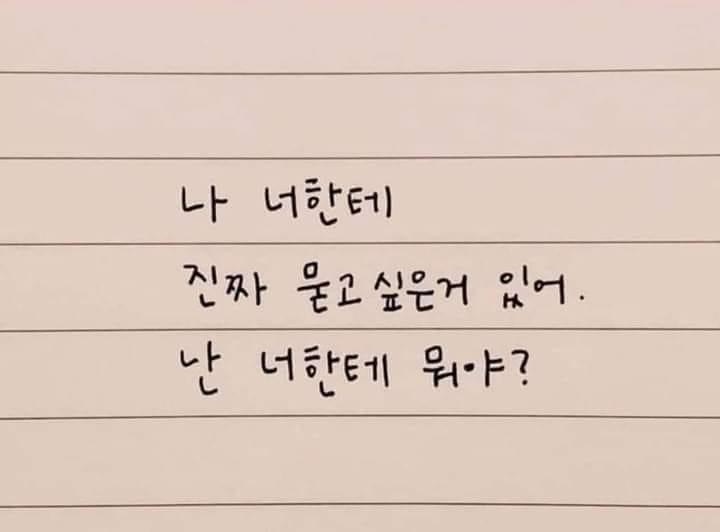 나 너한테
진짜 묻고싶은거 있어.
난 너한테 뭐야?